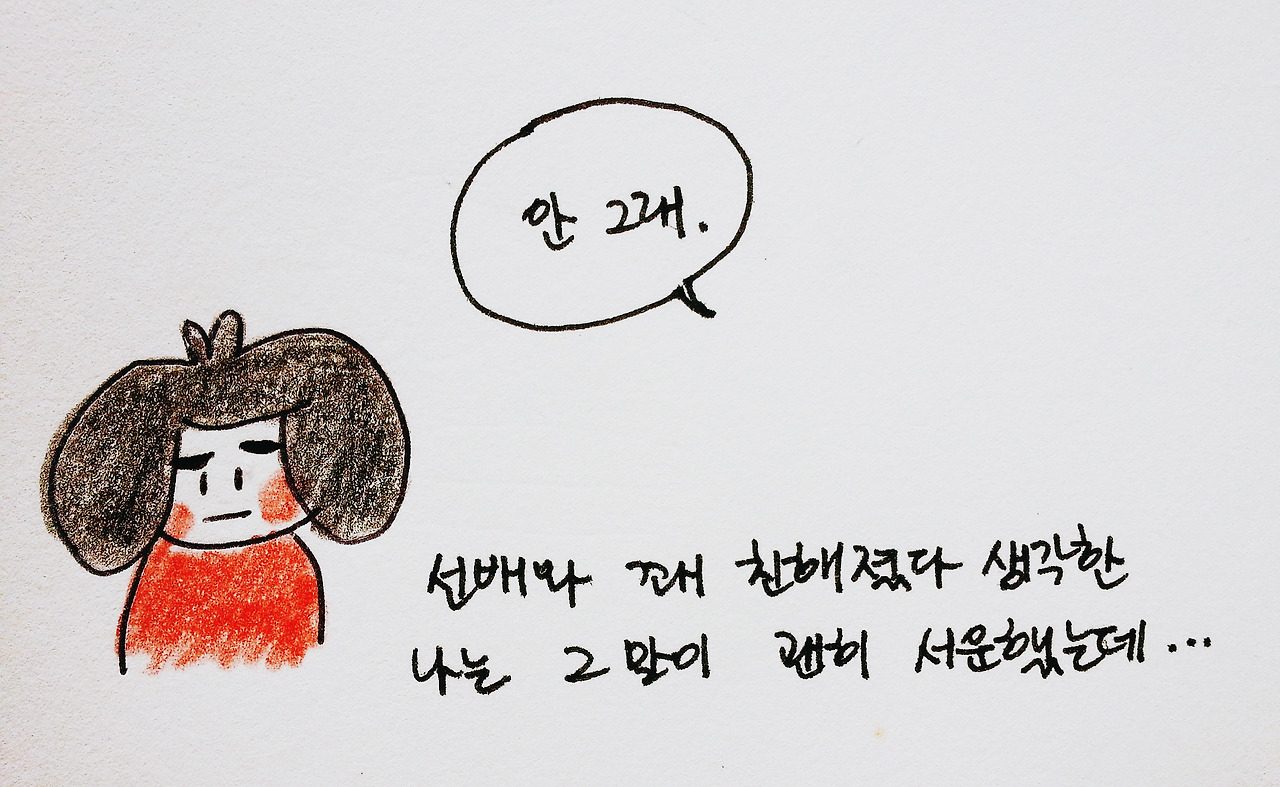 안 그래.
선배와 꽤 친해졌다 생각한
나는 그 말이 괜히 서운했는데...